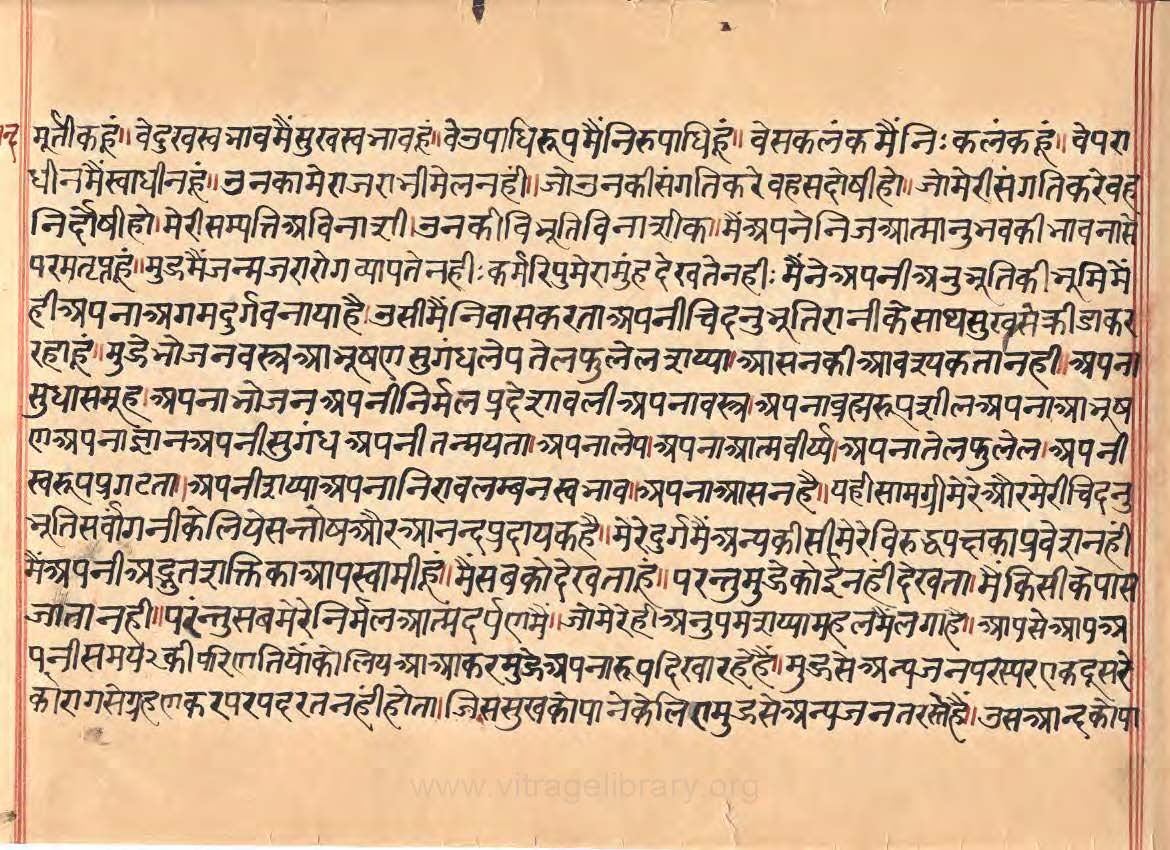 मूर्तीक हूं॥ वे दुखस्वभाव मैं सुखस्वभाव हूं॥ वे उपाधिरूप मैं निरुपाधि हूं॥ वे सकलंक मैं निःकलंक हूं॥ वे परा
धीन मैं स्वाधीन हूं॥ उनका मेरा जरा भी मेल नहीं॥ जो उनकी संगति करे वह सदोषी हो॥ जो मेरी संगति करे वह
निर्दोषी हो। मेरी सम्पत्ति अविनाशी। उनकी विभूति विनाशीक॥ मैं अपने निज आत्मानुभव की भावना से
परमतृप्त हूं॥ मुझमैं जन्म जरा रोग व्यापते नही: कर्मरिपु मेरा मुंह देखते नही: मैंने अपनी अनुभूति की भूमि में
ही अपना अगम दुर्ग वनाया है। उसी मैं निवास करता अपनी चिदनुभूति रानी के साथ सुख से क्रीडा कर
रहा हूं॥ मुझे भोजन वस्त्र आभूषण सुगंध लेप तेल फुलेल शय्या। आसन की आवश्यकता नही॥ अपना
सुधासमूह। अपना भोजन अपनी निर्मल प्रदेशावली अपना वस्त्र। अपना ब्रह्मरूप शील अपना आभूष
ण अपना ज्ञान अपनी सुगंध अपनी तन्मयता। अपना लेप। अपना आत्मवीर्य्य। अपना तेल फुलेल। अपनी
स्वरूप प्रगटता। अपनी शय्या अपना निरावलम्बन स्वभाव॥ अपना आसन है॥ यही सामग्री मेरे और मेरी चिदनु
भूति सर्वांगनी के लिये सन्तोष और आनन्दप्रदायक है॥ मेरे दुर्ग मैं अन्य कीसी मेरे विरुद्ध पक्ष का प्रवेश नहीं
मैं अपनी अद्भुत शक्ति का आप स्वामी हूं॥ मैं सबको देखता हूं॥ परन्तु मुझे कोई नहीं देखता। मैं किसी के पास
जाता नही॥ परंन्तु सब मेरे निर्मल आत्मदर्पण मैं॥ जो मेरे ही अनुपम शय्या महल मैं लगा है॥ आप से आप अ
पनी समय२ की परिणतियों को लिये आ आकर मुझे अपना रूप दिखा रहे हैं॥ मुझ से अन्य जन परस्पर एक दूसरे
को राग से ग्रहण कर परपदरत नहीं होता। जिस सुख को पाने के लिए मुझ से अन्य जन तरस्ते हैं। उस आन्द को पा
www.vitragelibrary.org